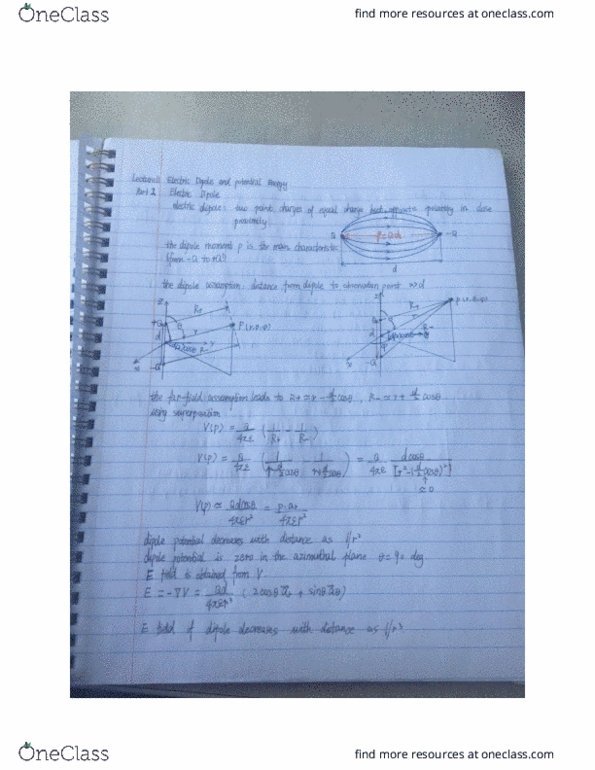 OneClass
find more resources at oneclass.com
Electric Dipole and potential Energy
Part 2 Electric Dipole
electric dipole: two point charges of equal charge but opposite polarity in close
proximity.
the dipole moment p is the main characteristic
(from -Q to +Q)
d
the dipole assumption: distance from dipole to observation point >> d
the far-field assumption leads to R+ ≈ r - d/2 cosθ, R- ≈ r + d/2 cosθ
using superposition
V(p) = Q/4πε (1/R+ - 1/R-)
V(p) = Q/4πε (1/(r - d/2 cosθ) - 1/(r + d/2 cosθ)) = Q/4πε dcosθ/[r² - (d/2 cosθ)²]
≈ 0
V(p) ≈ Qdcosθ/4πεr² = p·ar/4πεr²
dipole potential decreases with distance as 1/r²
dipole potential is zero in the azimuthal plane θ = 90 deg.
E field is obtained from V.
E = -∇V = Qd/4πεr³ (2cosθ ar + sinθ aθ)
E field of dipole decreases with distance as 1/r³
OneClass
find more resources at oneclass.com